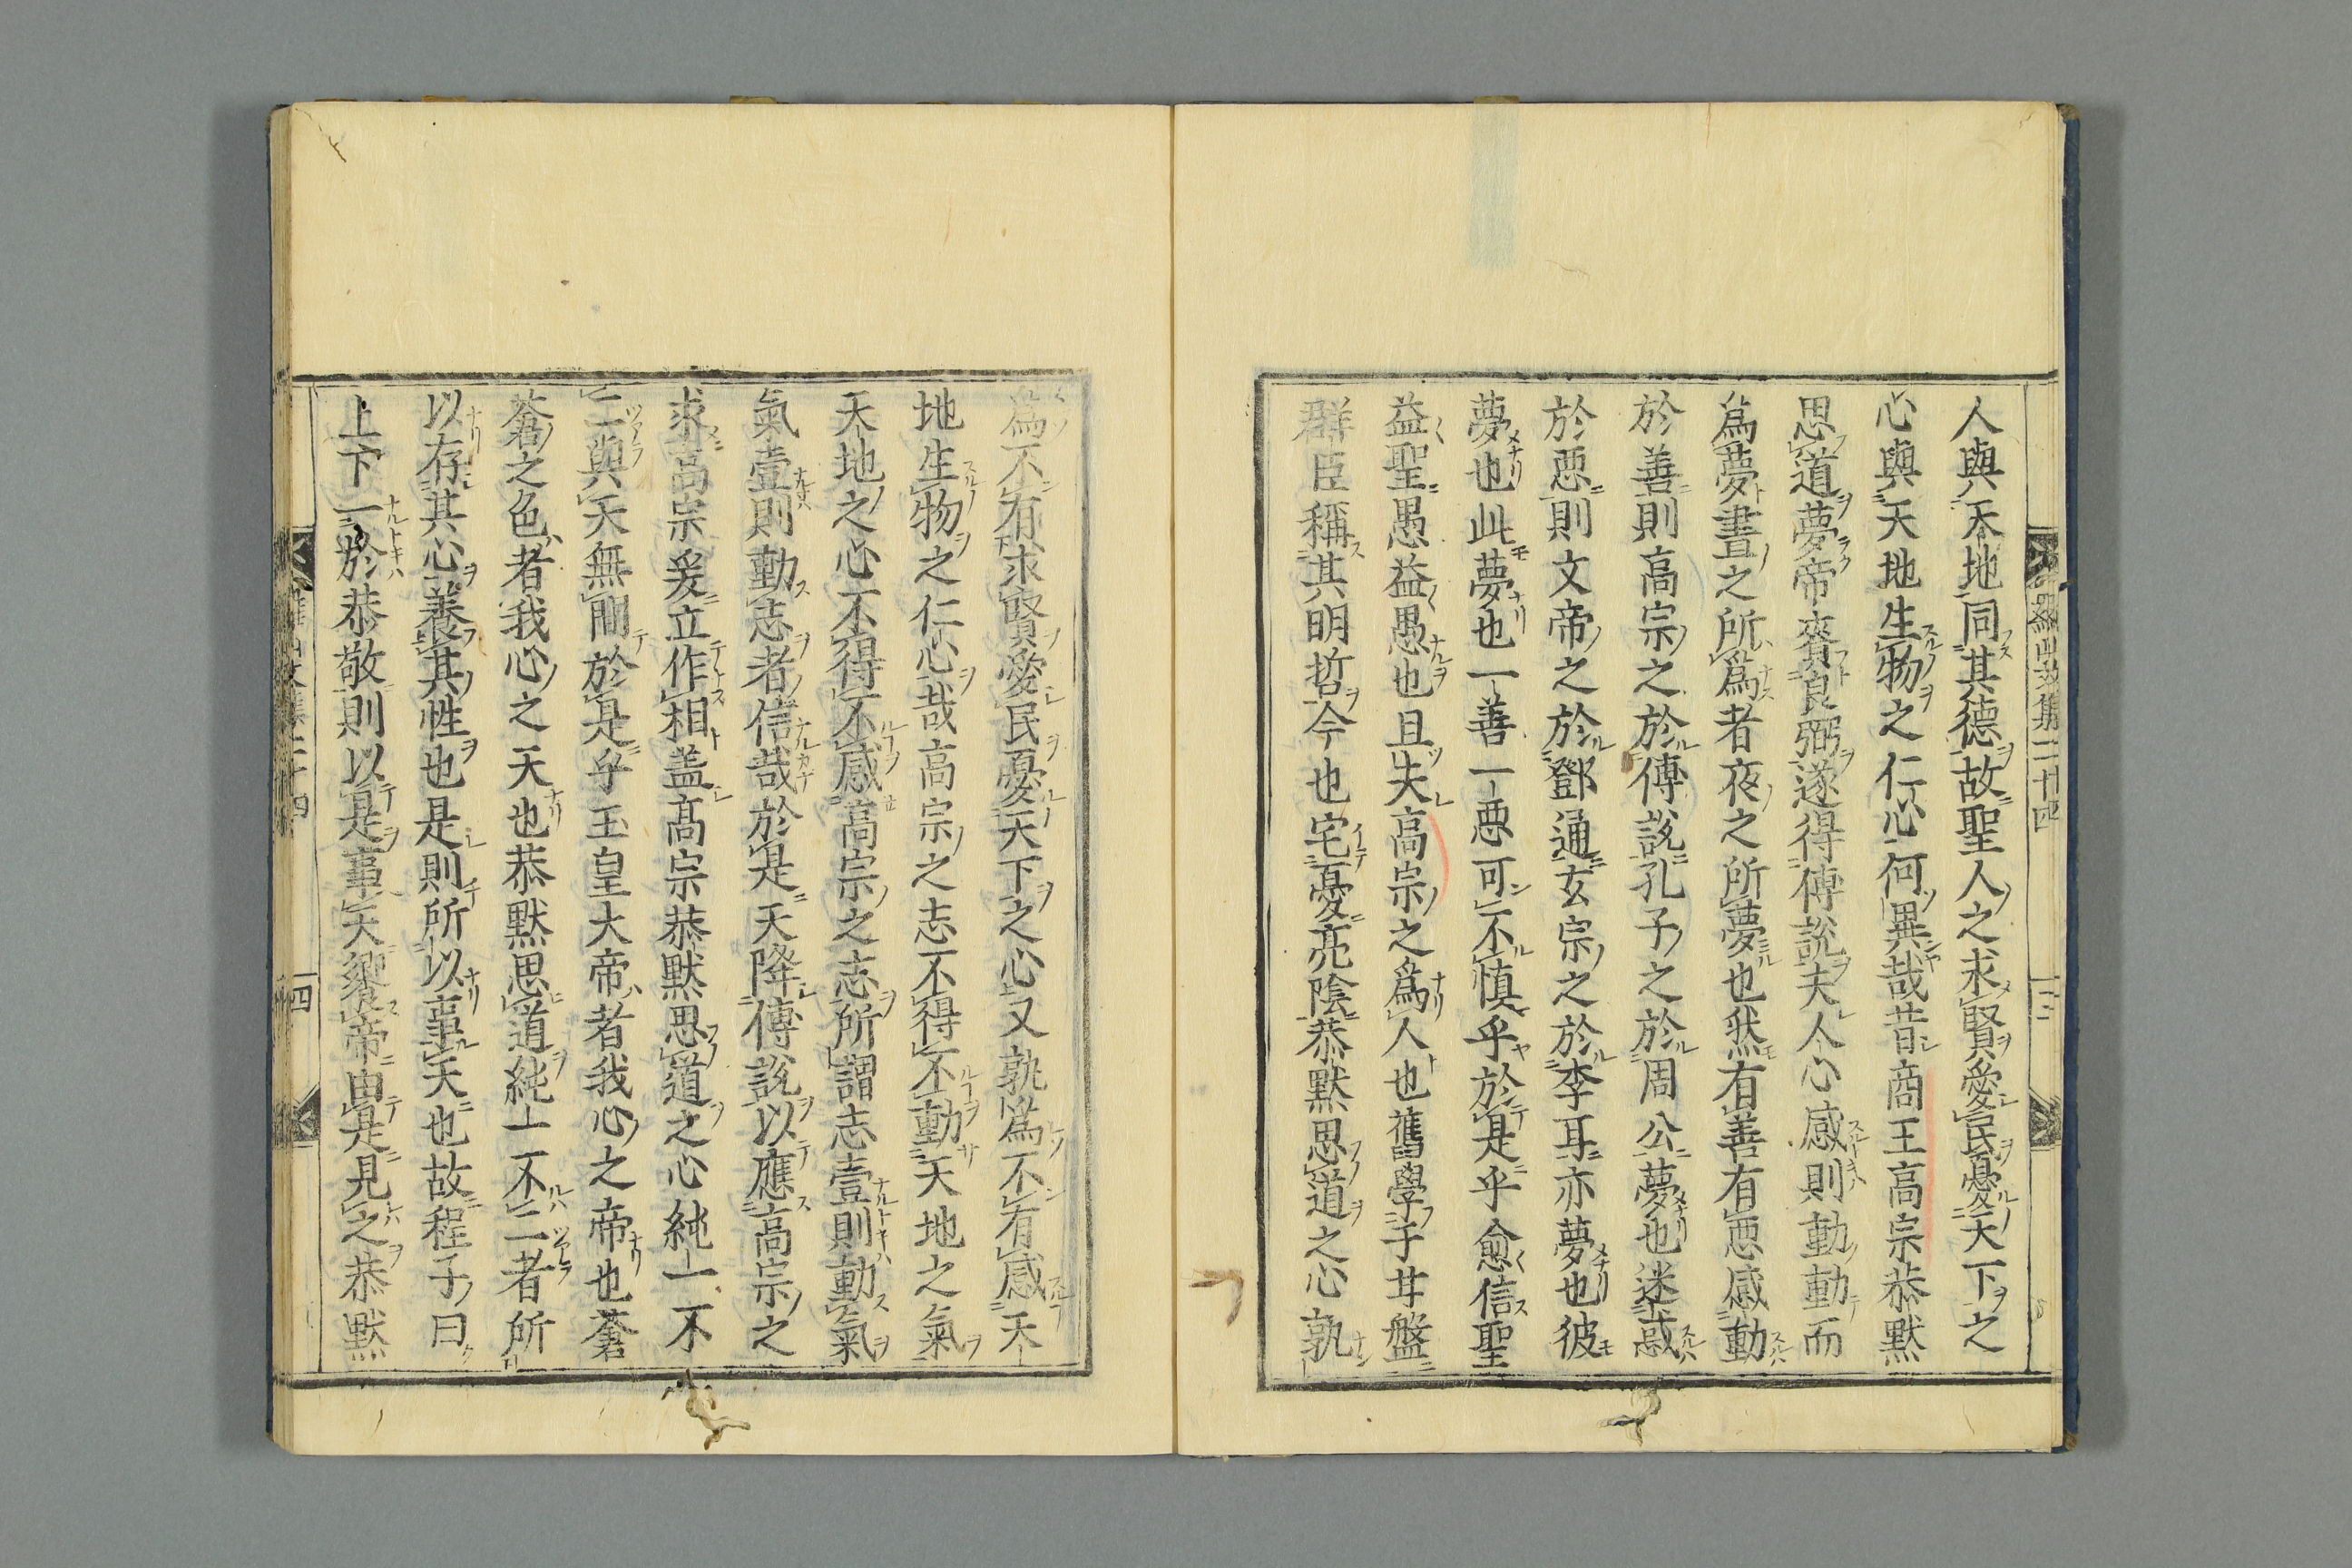 人與天地同其德故聖人之求賢愛民憂天下之
心與天地生物之仁心何異哉昔商王高宗恭默
思道夢帝賚良弼遂得傅説夫人心感則動動而
爲夢晝之所爲者夜之所夢也然有善有惡感動
於善則高宗之於傅説孔子之於周公夢也迷惑
於惡則文帝之於鄧通玄宗之於李耳亦夢也彼
夢也此夢也一善一惡可不慎乎於是乎愈信聖
益聖愚益愚也且夫高宗之爲人也舊學于甘盤
群臣稱其明哲今也宅憂亮陰恭默思道之心孰
爲不有求賢愛民憂天下之心又孰爲不有感天
地生物之仁心哉高宗之志不得不動天地之氣
天地之心不得不感高宗之志所謂志壹則動氣
氣壹則動志者信哉於是天降傅説以應高宗之
求高宗爰立作相蓋高宗恭默思道之心純一不
二與天無間於是乎玉皇大帝者我心之帝也蒼
蒼之色者我心之天也恭默思道純一不二者所
以存其心養其性也是則所以事天也故程子曰
上下一於恭敬則以是事天饗帝由是見之恭默
羅山文集二十四
三
四